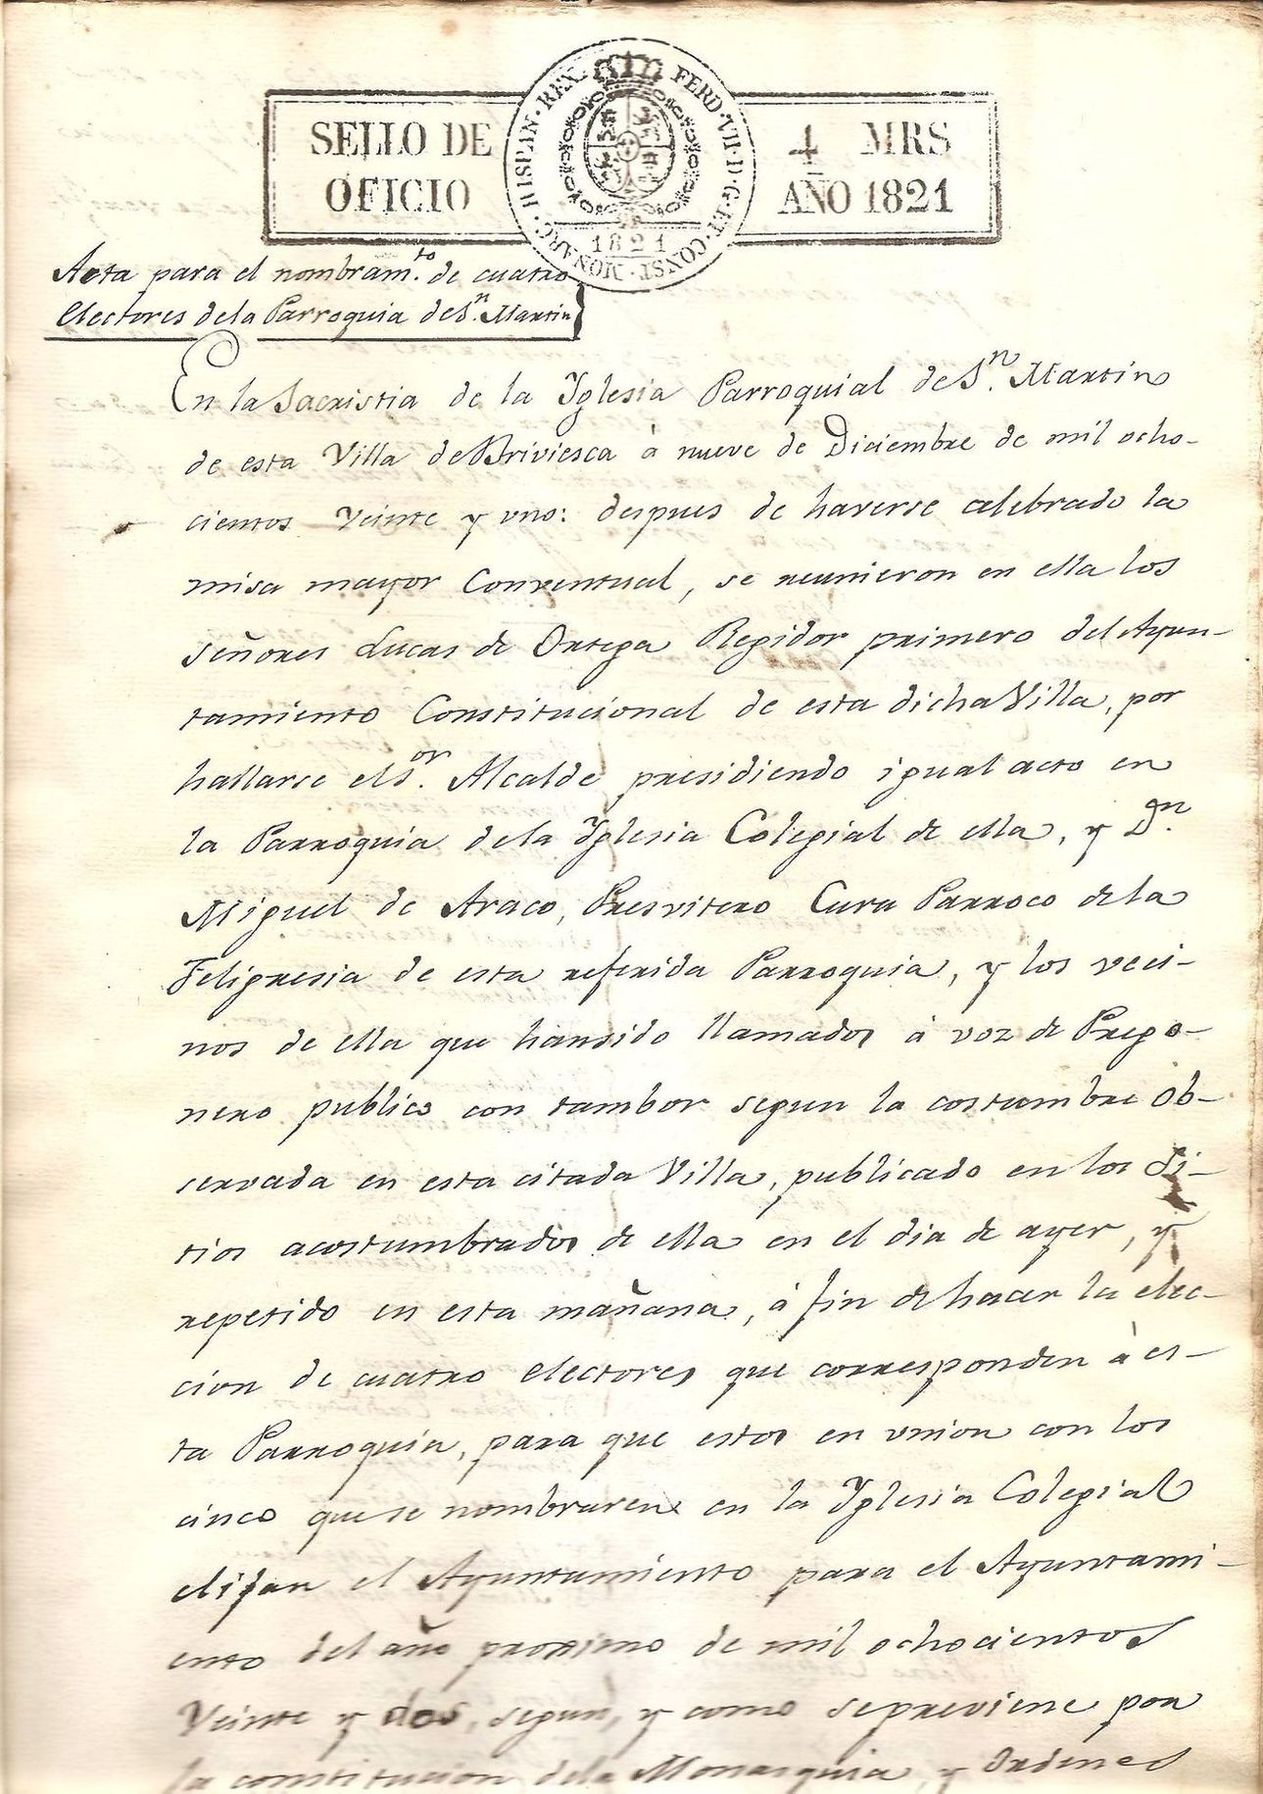 SELLO DE
OFICIO
HISPAN·REX. FERD·VII·D·G·ET·CONST·MONARC·
1821
4 MRS
AÑO 1821
Acta para el nombram.to de cuatro
electores de la Parroquia de S.n Martin
En la Sacristia de la Yglesia Parroquial de S.n Martin
de esta Villa de Briviesca à nueve de Diciembre de mil ocho-
cientos veinte y uno: despues de haverse celebrado la
misa mayor Conventual, se reunieron en ella los
señores Lucas de Ortega Regidor primero del Ayun-
tamiento Constitucional de esta dicha Villa, por
hallarse el S.or Alcalde presidiendo igual acto en
la Parroquia de la Yglesia Colegial de ella, y D.n
Miguel de Araco, Presvitero Cura Parroco de la
Feligresia de esta referida Parroquia, y los veci-
nos de ella que han sido llamados à voz de Prego-
nero publico con tambor segun la costumbre ob-
servada en esta citada Villa, publicado en los si-
tios acostumbrados de ella en el dia de ayer, y
repetido en esta mañana, à fin de hacer la elec-
cion de cuatro electores que corresponden à es-
ta Parroquia, para que estos en union con los
cinco que se nombraren en la Yglesia Colegial
elijan el Ayuntamiento para el Ayuntami-
ento del año proximo de mil ochocientos
Veinte y dos, segun, y como se previene por
la constitucion de la Monarquia, y Ordenes